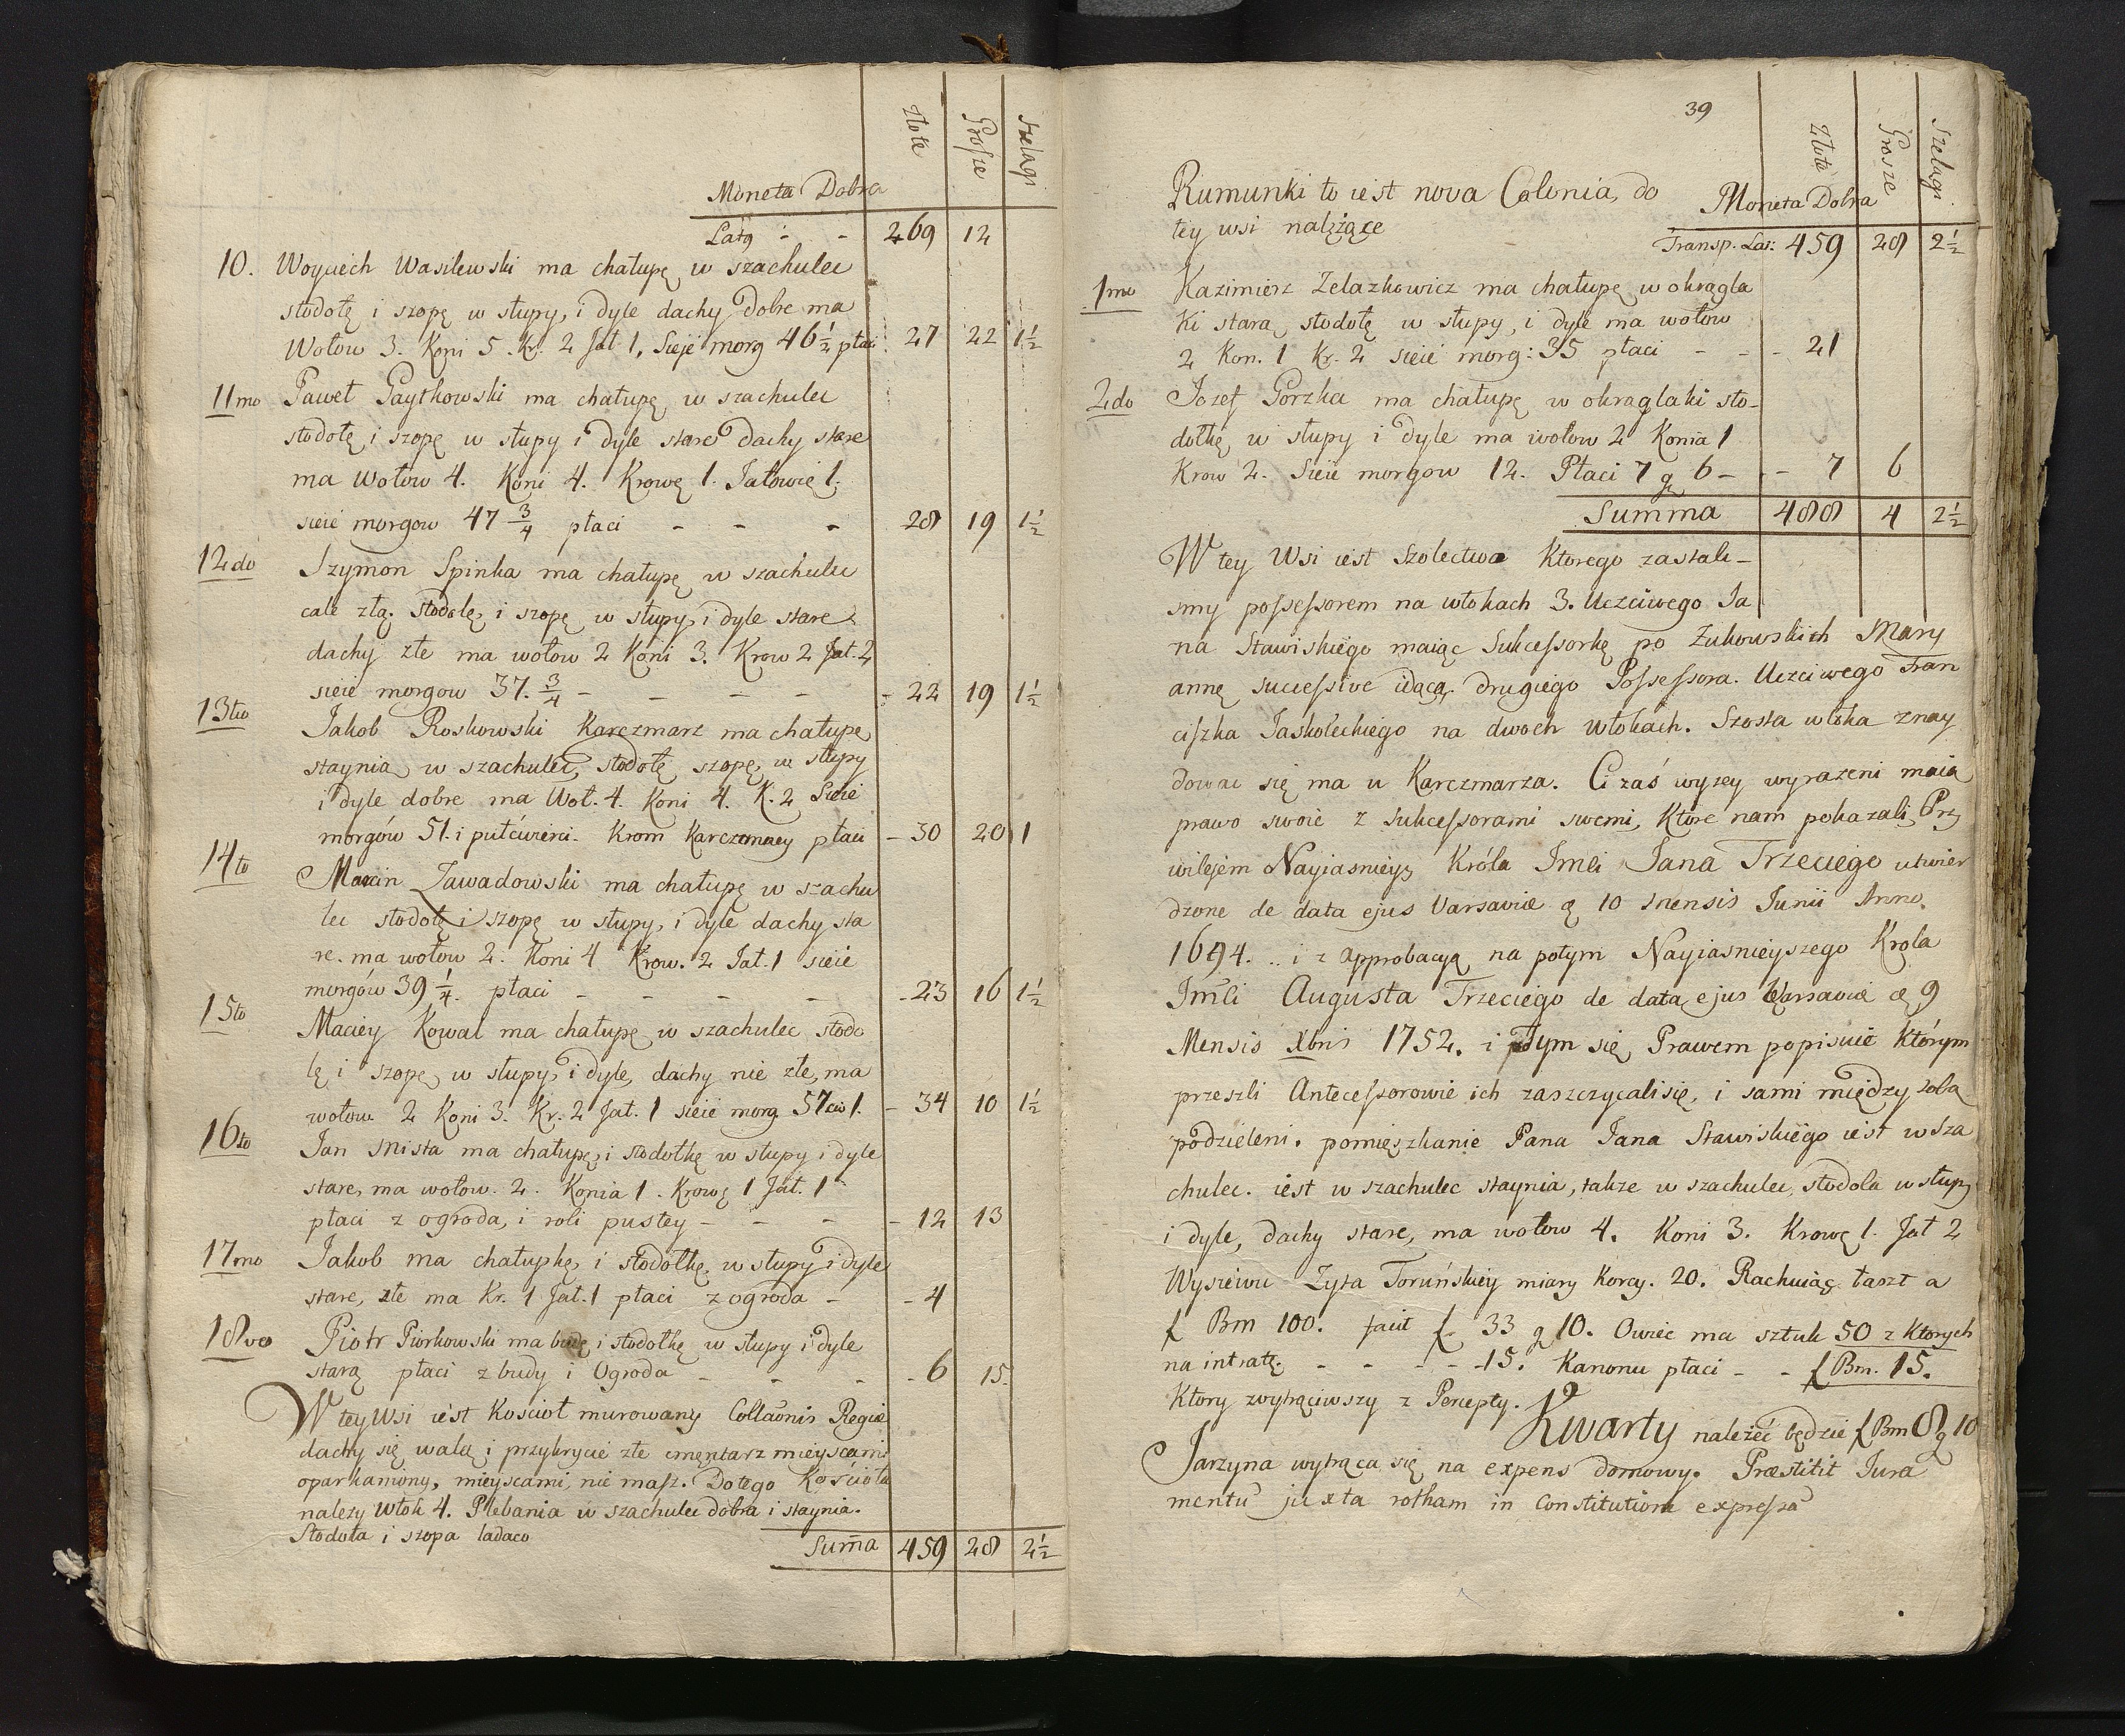 Złote Grosze Szelągi
Moneta Dobra
Latq - - 269 12
10. Woyciech Wasilewski ma chałupę w szachulec
stodołę i szopę w słupy, i dyle dachy Dobre ma
Wołow 3. Koni 5. Kr. 2 Jał 1, Sieje morg 46 1/2 płaci 27 22 1 1/2
11mo Paweł Gaytkowski ma chałupę w szachulec
stodołę i szopę w słupy i Dyle stare Dachy stare
ma Wołow 4. Koni 4. Krowę 1. Jałowię 1.
sieie morgow 47 3/4 płaci - - - 28 19 1 1/2
12do Szymon Spinka ma chałupę w szachulec
cale złą. Stodołę, i szopę w słupy, i dyle stare
dachy złe ma wołow 2 Koni 3. Krow 2 Jał. 2
sieie morgow 37. 3/4 - - - - - 22 19 1 1/2
13tio Jakob Roskowski Karczmarz ma chałupę
staynią w szachulec, stodołę szopę, w słupy
i dyle dobre ma Woł. 4. Koni 4. K. 2 Sieie
morgów 51. i pułćwierci. Krom Karczmaey płaci - 30 20 1
14to Marcin Zawadowski ma chałupę w szachu
lec stodołę i szopę w słupy, i dyle dachy sta
re. ma wołow 2. Koni 4 Krow. 2 Jał. 1 sieie
morgów 39 1/4. płaci - - - - - 23 16 1 1/2
15to Maciey Kowal ma chałupę w szachulec stodo
łę i szopę w słupy, i dyle, dachy nie złe, ma
wołow 2 Koni 3. Kr. 2 Jał. 1 sieie morg 57 1. - 34 10 1 1/2
16to Jan Mista ma chałupę, i stodołkę w słupy i dyle
stare, ma wołow. 2. Konia 1. Krowę 1 Jał. 1
płaci z ogroda, i roli pustey - - - - 12 13
17mo Jakob ma chałupkę, i stodołkę w słupy i dyle
stare, złe ma Kr. 1 Jał. 1 płaci z ogroda - - 4
18vo Piotr Piorkowski ma budę i stodołkę w słupy i dyle
starą płaci z budy i Ogroda - - - - 6 15.
W tey Wsi iest Kosciół murowany Collaonis Regiæ
dachy się walą i przykrycie złe cmęntarz mieyscami
oparkaniony, mieyscami, nie masz. Do tego Kościoła
należy Włok 4. Plebania w szachulec dobra i staynia.
Stodoła i szopa ladaco
Summa 459 28 2 1/2
39
Złote Grosze Szelągi
Rumunki to iest nova Colonia, do
tey wsi nalężące
Moneta Dobra
Transp. Lat: 459 28 2 1/2
1mo Kazimierz Zelazkowicz ma chałupę w okrągla
ki starą stodołę w słupy, i dyle ma wołow
2 Kon. 1 Kr. 2 sieie morg: 35 płaci - - - 21
2do Jozef Gorzka ma chałupę w okrąglaki sto-
dołkę w słupy i dyle ma wołow 2 Konia 1
Krow 2. Sieie morgow 12. Płaci 7 g 6 - - 7 6
Summa 488 4 2 1/2
W tey Wsi iest Szolectwo Ktorego zastali-
smy possessorem na włokach 3. Uczciwego Ja
na Stawiskiego maiąc Sukcessorkę po Zukowskich Mary
annę successive idącą. drugiego Possessora. Uczciwego Fran
ciszka Jaskoleckiego na dwoch włokach. Szosta włoka znay
dować się ma u Karczmarza. Ci zaś wyzey wyrazeni maią
prawo swoie z sukcessorami swemi, Które nam pokazali, Przy
wilejem Nayiasnieysz Króla Jmći Jana Trzeciego utwier
dzone de data ejus Varsaviæ d 10 mensis Junii Anno.
1694. .. i z approbacyą na potym Nayiasnieyszego Krola
Jmći Augusta Trzeciego de data ejus Warsaviæ d 9
Mensis Xbris 1752. i tym się Prawem popisuie Którym
przeszli Antecessorowie ich zaszczycali się, i sami między sobą
podzieleni. pomieszkanie Pana Jana Stawiskiego iest w Sza
chulec. iest w szachulec staynia, takze w szachulec, stodola w słupy
i dyle, dachy stare, ma wołow 4. Koni 3. Krowę 1. Jał 2
Wysiewu Zyta Toruńskiey miary Korcy. 20. Rachuiąc łaszt a
f Bm 100. facit f. 33 g 10. Owiec ma sztuk 50 z Ktorych
na intratę. - - - - - 15. Kanonu płaci - - f Bm. 15.
Ktory zwytrąciwszy z Percepty.
Kwarty należeć będzie f Bm 8 g 10
Jarzyna wytrąca się na expens domowy. Præstitit Jura
mentu juxta rotham in Constitutione expressa